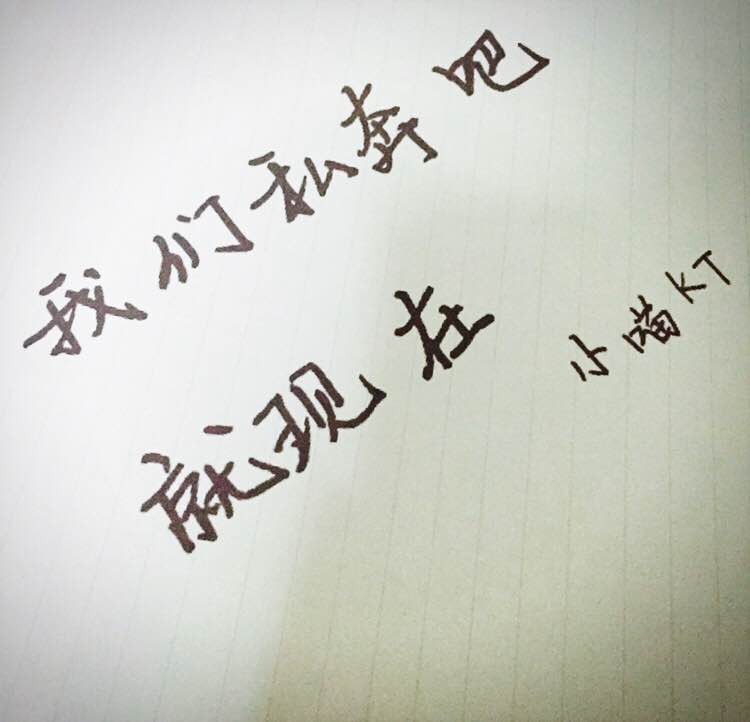 我们私奔吧
就现在
小喵KT